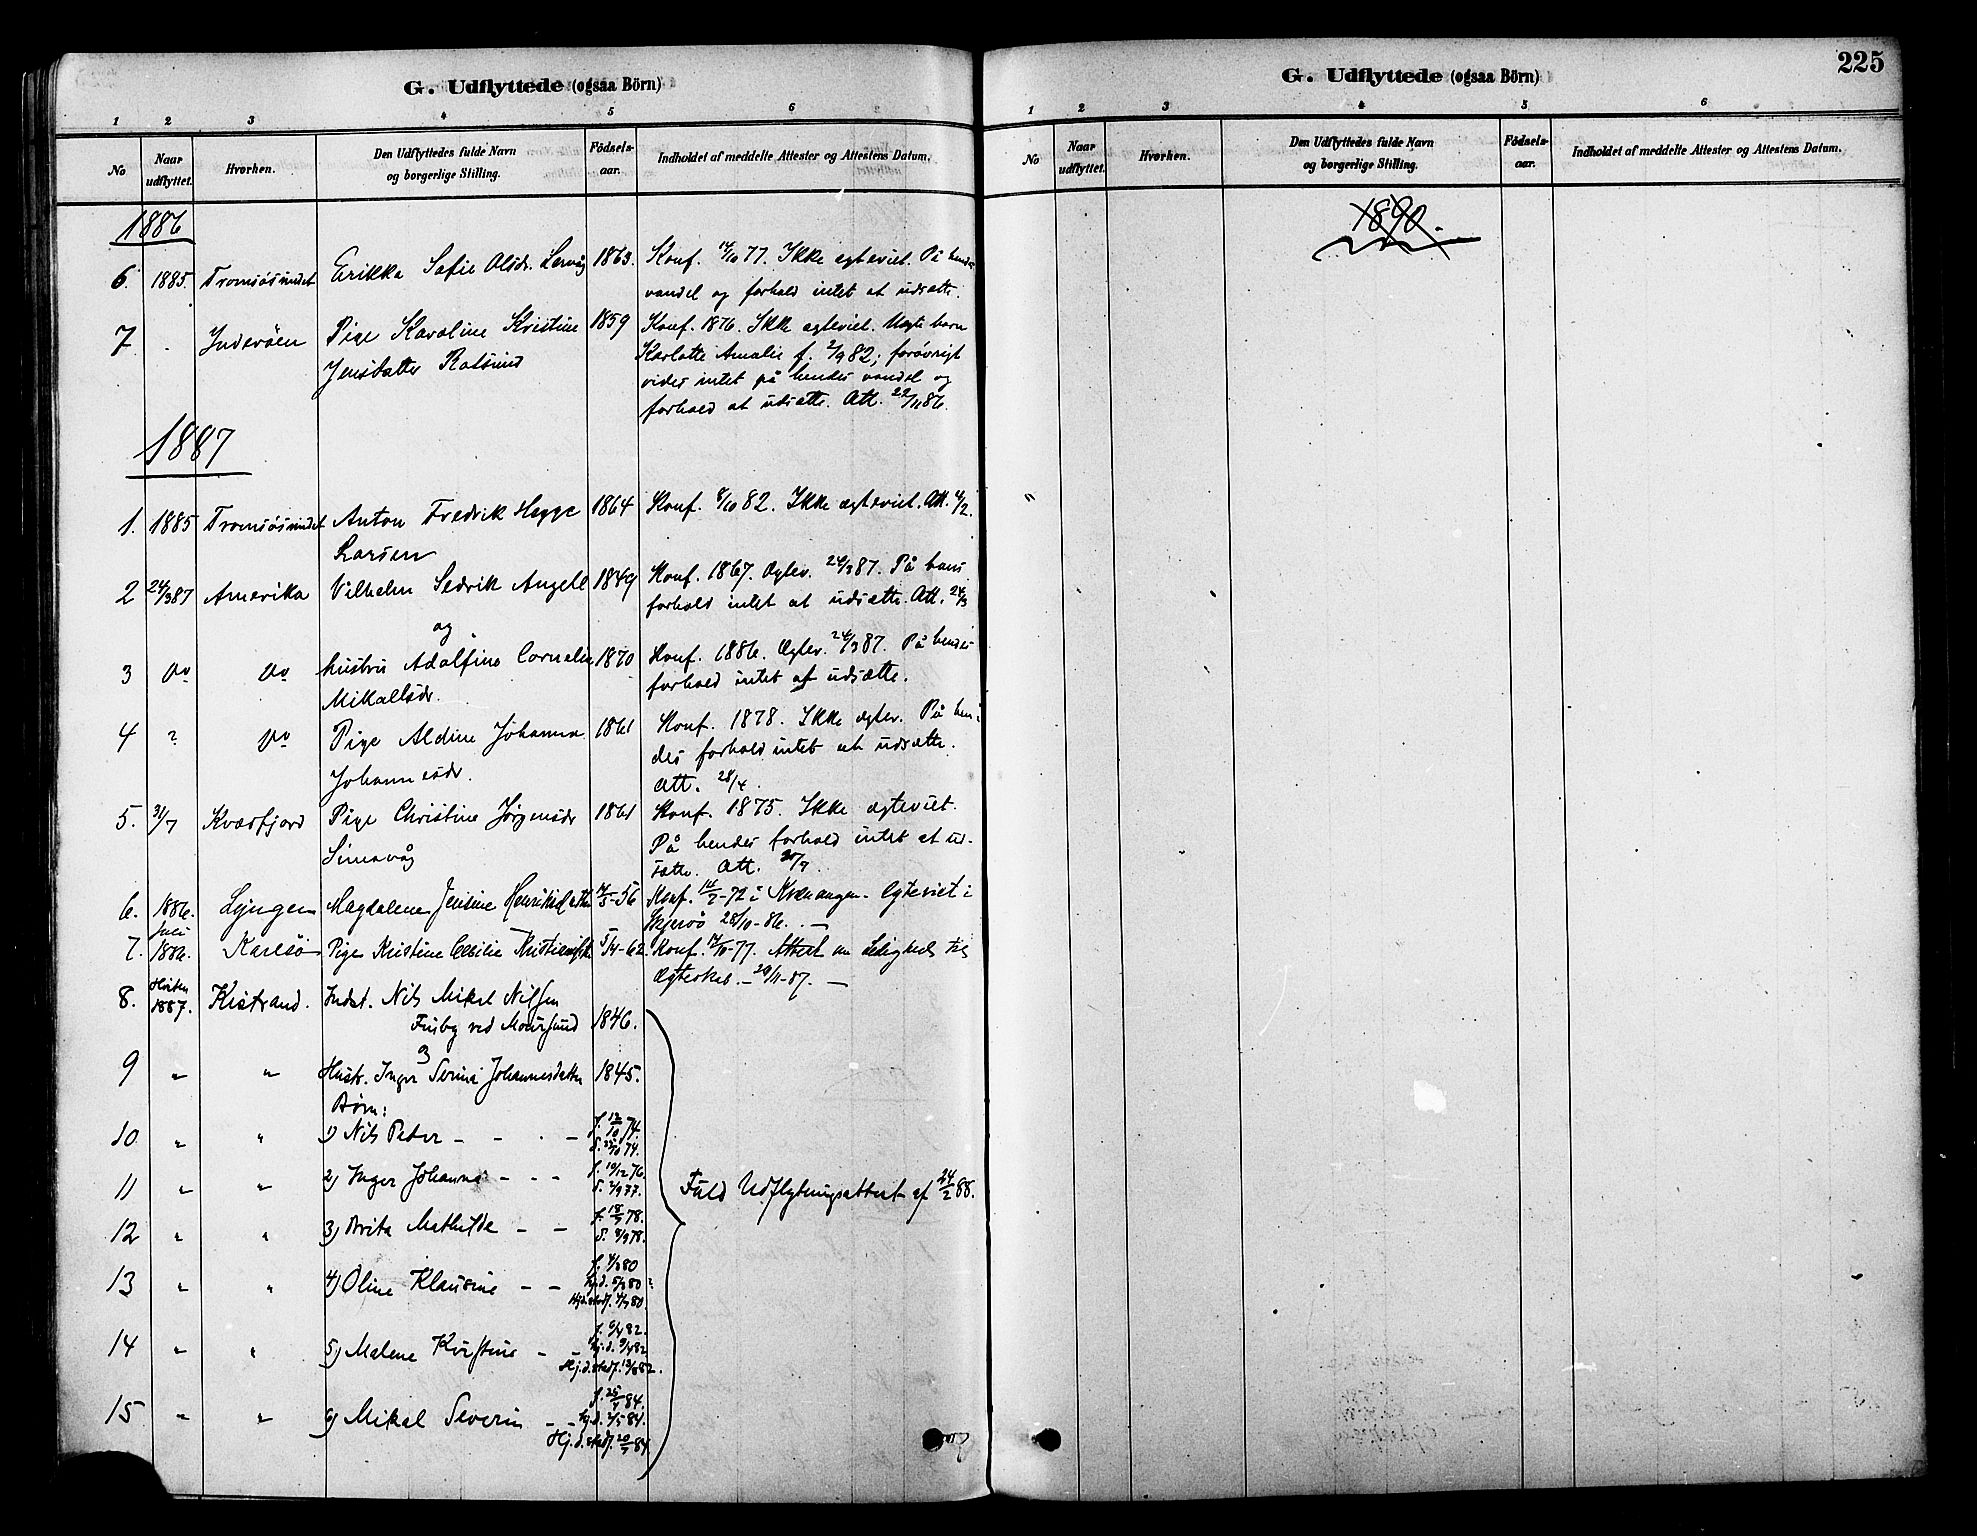 G. Udflyttede (ogsaa Börn)
1 2 3 4 5 6
No
Naar udflyttet.
Hvorhen.
Den Udflyttedes fulde Navn og borgerlige Stilling.
Födsels-aar.
Indholdet af meddelte Attester og Attestens Datum.
1886
6. 1885. Tromsösundet Erikka Sofie Olsdr. Lervåg 1863. Konf. 14/10 77. Ikke egteviet. På hendes
vandel og forhold intet at udsætte.
7 . Inderöen Pige Karoline Kristine 1859 Konf. 1876. Ikke egteviet. Uegte barn
Jensdatter Rotsund Karlotte Amalie f. 2/9 82; forövrigt
vides intet på hendes vandel og
forhold at udsætte. Att. 22/11 86.
1887
1. 1885 Tromsösundet Anton Fredrik Hegge 1864 Konf. 8/10 82. Ikke ægteviet. Att. 4/2.
Larsen
2 24/3 87 Amerika Vilhelm Sedrik Angell 1849 Konf. 1867. Ægtev. 24/3 87. På hans
forhold intet at udsætte. Att. 24/3
og
3 do do hustru Adolfine Cornelia 1870 Konf. 1886. Ægtev. 24/3 87. På hendes
Mikalsdr. forhold intet at udsætte.
4 ? do Pige Aldine Johanna 1861 Konf. 1878. Ikke ægtev. På hen-
Johannesdr. des forhold intet at udsætte.
Att. 28/4.
5. 31/7 Kvæfjord Pige Christine Jörgensdr 1861 Konf. 1875. Ikke ægteviet.
Simavåg På hendes forhold intet at ud-
sætte. Att. 30/7.
6. 1886. Lyngen Magdalene Jensine Henriksdatter 7/5-56 Konf. 14/7-72 i Kvænangen. Egteviet i
Skjervö 28/10-86. —
7. Juli 1886. Karlsö Pige Kristine Cecilie Kristiansdtr 5/4-62 Konf. 14/10-77. Attest om Ledighed til
Ægteskab. - 29/11-87. —
8. Hösten 1887. Kistrand. Indst. Nils Mikal Nilsen
Fusby ved Maursund 1846.
og
9 " " Hustr. Inger Serine Johannesdatter 1845.
Börn:
10 " " 1) Nils Peder - - - - f. 12/10 74.
d. 25/10 74.
11 " " 2) Inger Johanna - - - f. 10/12 76.
d. 2/9 77.
Fuld Udflytningsattest af 24/2 88.
12 " " 3) Brita Mathilde - - f. 18/7 78.
d. 8/9 78.
13 " " 4) Oline Klausine - - f. 4/3 80
hj.d. 5/3 80
Hj.d. stadf. 4/7 80.
14 " " 5) Malene Kristine - - f. 6/4 82.
hj.d. 9/4 82
Hj.d. stadf. 13/8 82.
15 " " 6) Mikal Severin - - f. 25/4 84.
hj.d. 2/5 84.
Hj.d. stadf. 20/7 84
G. Udflyttede (ogsaa Börn)
225
1 2 3 4 5 6
No
Naar udflyttet.
Hvorhen.
Den Udflyttedes fulde Navn og borgerlige Stilling.
Födsels-aar.
Indholdet af meddelte Attester og Attestens Datum.
1890.